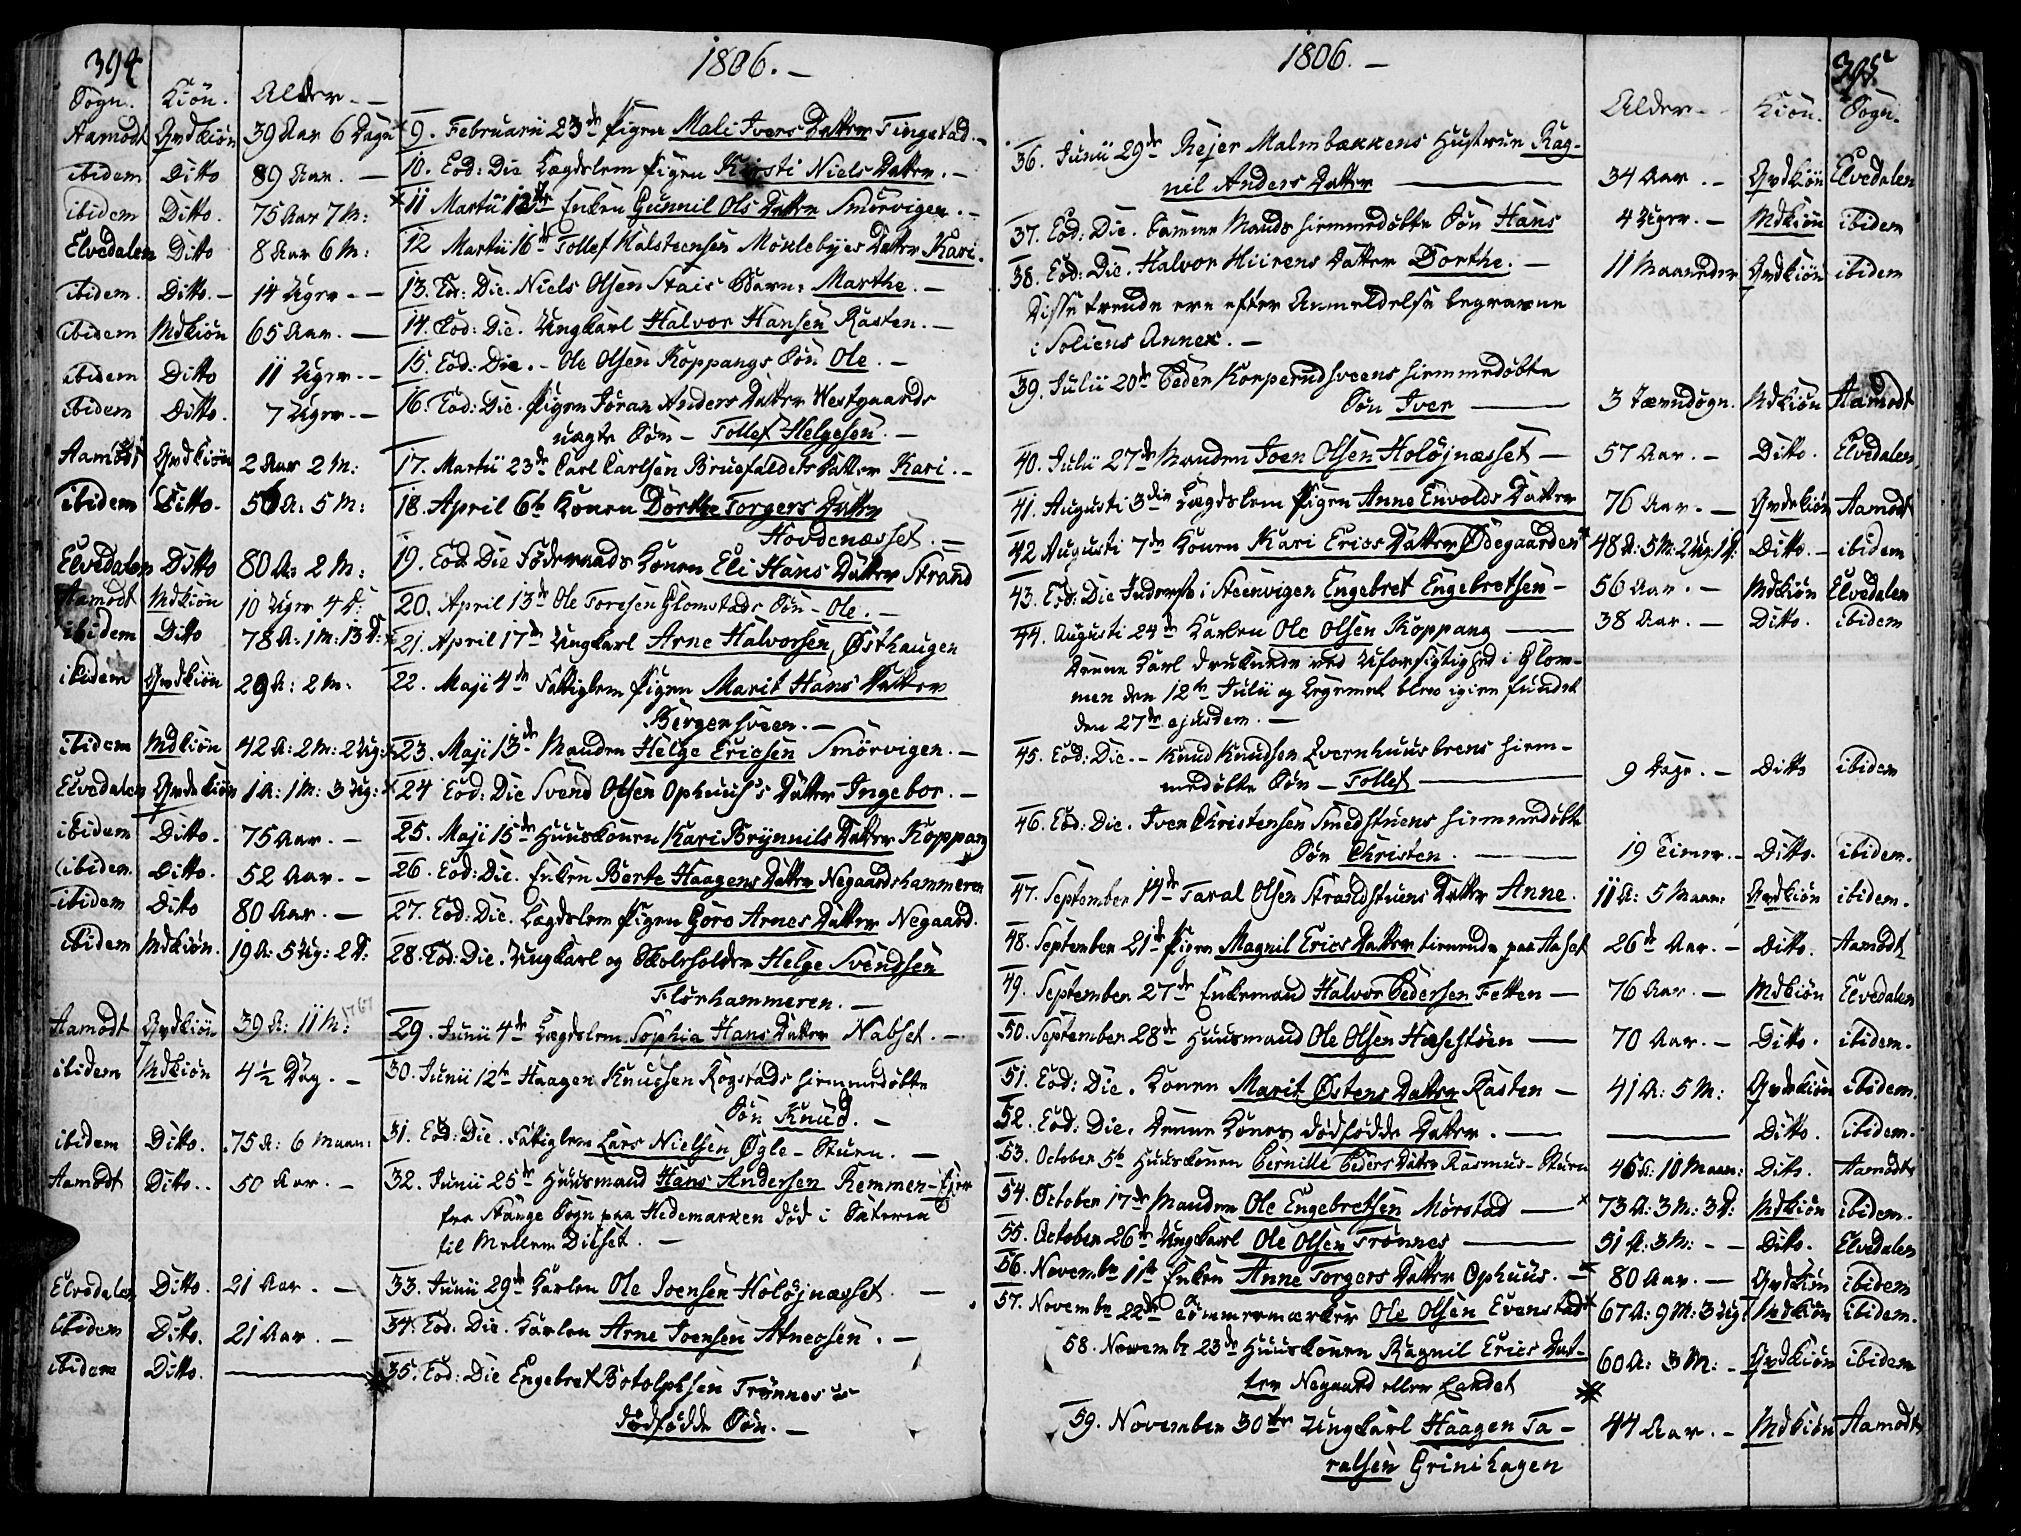 394
1806. –
Sogn. Kiön. Alder. –
Aamodt Qvdkiön 39 Aar 6 Dage × 9. Februarii 23de Pigen Mali Ivers Datter Tingstad. –
ibidem Ditto 89 Aar. – 10. Eod: Die Lægdslem Pigen Kirsti Niels Datter. –
ibidem Ditto. 75 Aar 7 M: × 11 Martii 12te Enken Gunnil Ols Datter Smörvigen. –
Elvedalen Ditto 8 Aar 6 M: 12 Martii 16de Tollef Halsteensen Möklebyes Datter Kari.
ibidem. Ditto. – 14 Uger. – 13. Eod: Die. Niels Olsen Stais Barn: Marthe. –
ibidem Mdkiön 65 Aar. – 14. Eod: Die. Ungkarl Halvor Hansen Rasten. –
ibidem Ditto 11 Uger. – 15. Eod: Die. – Ole Olsen Koppangs Sön Ole. –
ibidem Ditto. 7 Uger. – 16. Eod: Die. Pigen Jöran Anders Datter Westgaards
uægte Sön – Tollef Helgesen. –
Aamodt Qvdkiön 2 Aar 2 M: 17. Martii 23de Carl Carlsen Bruefaldets Datter Kari. –
ibidem Ditto. 5 M: 18. April 6te Konen Dorthe Torgers Datter
Hovdenæsset. –
Elvedalen Ditto 80 A: 2 M: 19. Eod: Die Föderaads Konen Eli Hans Datter Strand
Aamodt Mdkiön 10 Uger 4 D: 20. April 13de Ole Toresen Glomstads Sön – Ole. –
ibidem Ditto 78 A: 1 M: 13 D: × 21. April 17de Ungkarl Arne Halvorsen Østhaugen
ibidem Qvdkiön 29 A: 2 M: 22. Maji 4de Fattiglem Pigen Marit Hans Datter
Bergensveen. –
ibidem Mdkiön 42 A: 2 M: 2 Ug: × 23. Maji 13de Manden Helge Ericsen Smörvigen. –
Elvedalen Qvdkiön 1 A: 1 M: 3 Ug: × 24 Eod: Die Svend Olsen Ophuus's Datter Ingebor. –
ibidem Ditto. 75 Aar. – 25. Maji 15de Huuskonen Kari Brynnils Datter Koppang
ibidem Ditto. 52 Aar. – 26. Eod: Die. Enken Berte Haagens Datter Negaardshammeren
ibidem Ditto 80 Aar. – 27. Eod: Die. Lægdslem Pigen Goro Arnes Datter Negaard.
ibidem Mdkiön. 19 A: 5 Ug: 2 D: 28. Eod: Die. Ungkarl og Skoleholder Helge Svendsen
Florhammeren. –
Aamodt Qvdkiön 39 A: 11 M: 29. Junii 4de Lægdslem Sophia Hans Datter Nabset. –
ibidem Mdkiön 4½ Dag. – 30. Junii 12te Haagen Knudsen Rogstads hiemmedöbte
Sön Knud. –
ibidem Ditto. 75 A: 6 Maan: 31. Eod: Die. Fattiglem Lars Nielsen Øgle-Stuen. –
Aamodt Ditto. 50 Aar. – 32. Junii 25de Huusmand Hans Andersen Remmen-Ejer
fra Stange Sogn paa Hedemarken död i Sæteren
til Mellem Diset. –
Elvedalen Ditto. 21 Aar. – 33. Junii 29de Karlen Ole Joensen Holöjnæsset. –
ibidem Ditto. 21 Aar. – 34. Eod. Die. Karlen Arne Joensen Atneosen. –
ibidem Ditto. – 35. Eod: Die Engebret Botolphsen Trönnes's
dödfödde Sön. –
1806. –
395
Alder. – Kiön. Sogn.
36. Junii 29de Rejer Malmbækkens Hustrue Rag-
nil Anders Datter – 34 Aar. – Qvdkiön Elvedalen
37. Eod: Die. Samme Mands hiemmedöbte Sön Hans 4 Uger. – Mdkiön ibidem
38. Eod: Die. Halvor Hiirens Datter Dorthe. – 11 Maaneder Qvdkiön ibidem
Disse trende ere efter Anmeldelse begravne
i Soliens Annex. –
39. Julii 20de Peder Korperudsveens hiemmedöbte
Sön Iver – 3 Jævndögn. Mdkiön Aamodt
40. Julii 27de Manden Joen Olsen Holöjnæsset – 57 Aar. – Ditto. Elvedalen
41. Augusti 3die Lægdslem Pigen Anne Envolds Datter 76 Aar. – Qvdkiön Aamodt
42 Augusti 7de Konen Kari Erics Datter Ødegaarden × 48 A: 5 M: 2 Ug: 1 D. Ditto. – ibidem
43. Eod: Die Inderste i Steenvigen Engebret Engebretsen – 56 Aar. – Mdkiön Elvedalen
44. Augusti 24de Karlen Ole Olsen Koppang – 38 Aar. – Ditto. ibidem
Denne Karl druknede ved Uforsigtighed i Glom-
men den 12te Julii og Legemet blev igien fundet
den 27de ejusdem. –
45. Eod: Die. – Knud Knudsen Qvernhuusbrens hiem-
medöbte Sön – Tollef – 9 Dage. – Ditto ibidem
46. Eod: Die. Iver Christensen Smedstuens hiemmedöbte
Sön Christen. – 19 Timer. – Ditto. ibidem.
47. September 14de Taral Olsen Strandstuens Datter Anne. 11 A: 5 Maan: Qvdkiön ibidem.
48. September 21de Pigen Magnil Erics Datter tienende paa Aaset 26 Aar. – Ditto. Aamodt
49. September 27de Enkemand Halvor Pedersen Fetten – 76 Aar. – Mdkiön Elvedalen
50. September 28de Huusmand Ole Olsen Hæsestöen – 70 Aar. – Ditto. ibidem.
51. Eod: Die. Konen Marit Østens Datter Rasten – 41 A: 5 M: Qvdkiön ibidem.
52. Eod: Die. Denne Kones dödfödde Datter. – Ditto. ibidem.
53. October 5te Huuskonen Pernille Peders Datter Rasmus-Stuen 46 A: 10 Maan: Ditto. Aamodt
54. October 17de Manden Ole Engebretsen Mörstad – × 73 A: 3 M: 3 D: Mdkiön ibidem.
55. October 26de Ungkarl Ole Olsen Trönnes – 51 A: 3 M: – Ditto. Elvedalen
56. Novembr 11te Enken Anne Torgers Datter Ophuus. – × 80 Aar. – Qvdkiön ibidem
57. Novembr 22de Tömmermærker Ole Olsen Evenstad × 67 A: 9 M: 3 Ug: Mdkiön ibidem.
58. Novembr 23de Huuskonen Ragnil Erics Dat-
ter Negaard eller Landet 60 A: 3 M: – Qvdkiön ibidem
59. November 30te Ungkarl Haagen Ta-
ralsen Grinihagen 44 Aar. – Mdkiön Aamodt